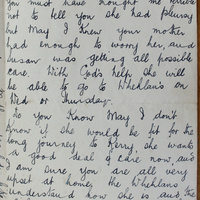 You must have thought me
not to tell you she had pleurisy
but May I knew your mother
had enough to worry her, and
Susan was getting all possible
care. With God's help she will
be able to go to Whehlans on
Wed or Thursday.
So you know May I don't
know if she would be fit for the
long journey to Kerry, she wants
a good deal of care now, and
I am sure you are all very
upset at home, the Whehlans
understand how she is and the